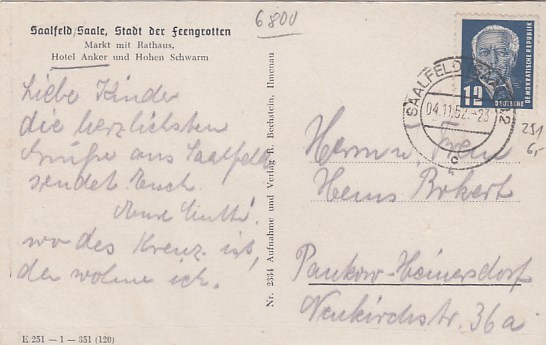 6800
Saalfeld/Saale, Stadt der Feengrotten
Markt mit Rathaus,
Hotel Anker und Hohen Schwarm
Liebe Kinder
die herzlichsten
Grüße aus Saalfeld
sendet Euch
Eure Mutti!
wo das Kreuz ist,
da wohne ich.
E 251 — 1 — 351 (120)
Nr. 2334 Aufnahme und Verlag R. Bechstein, Ilmenau
12
DEUTSCHE
DEMOKRATISCHE REPUBLIK
SAALFELD (SAALE) 2
04.11.52.-23
c
251
6,-
Herrn u. Frau
Heinz
Pankow-Heinersdorf
Neukirchstr. 36a